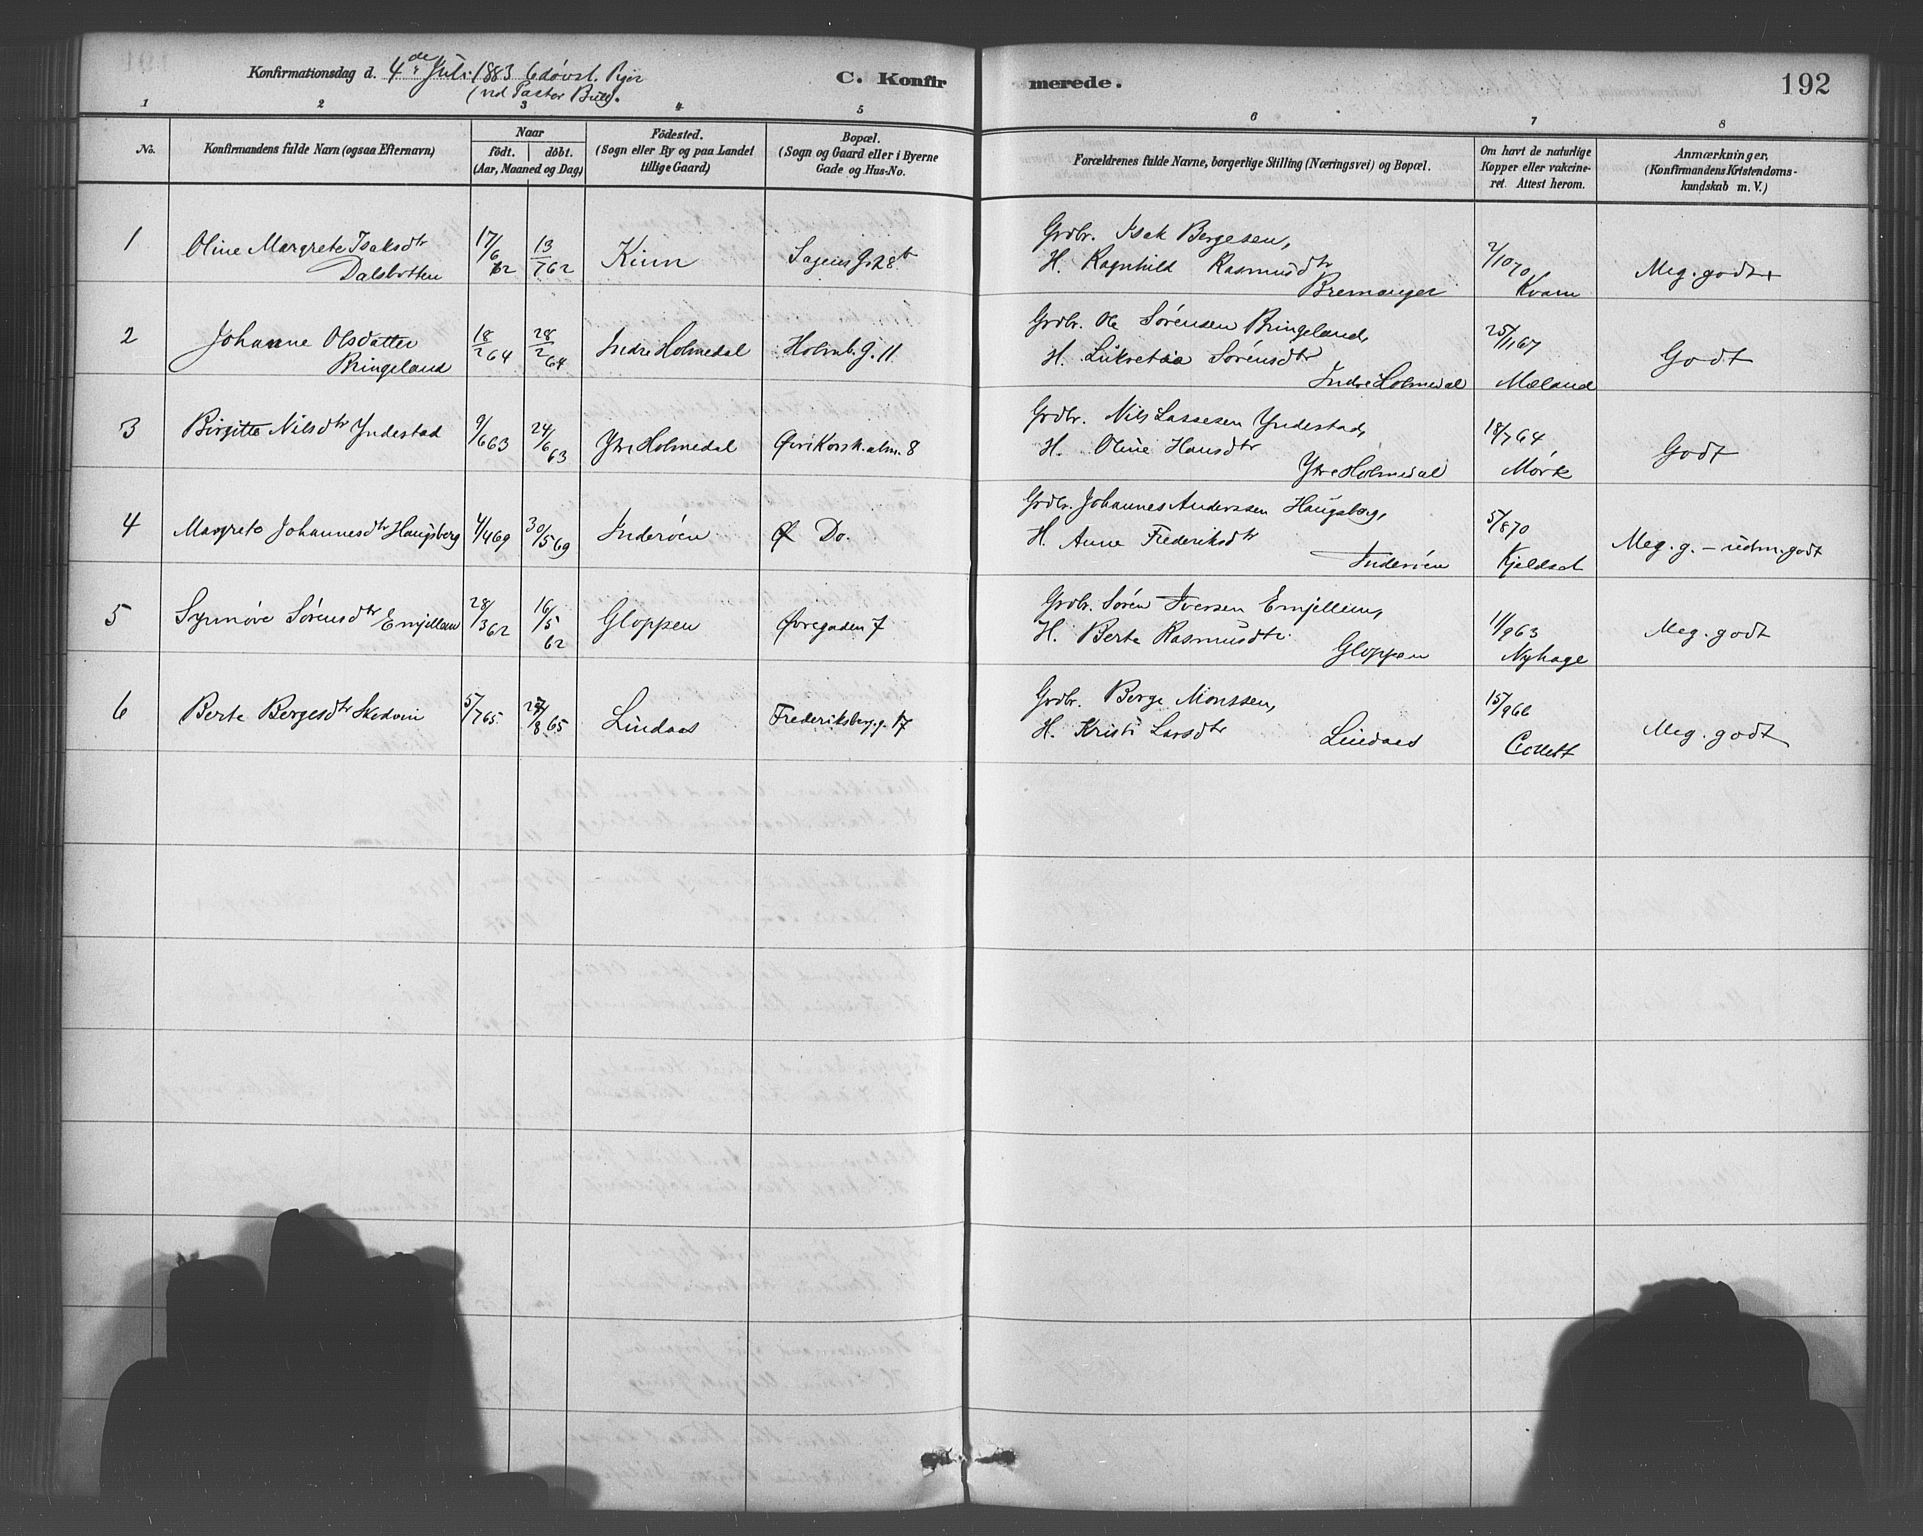 Konfirmationsdag d. 4de Juli 1883 6 døvst. Piger
(ved Pastor Bull).
C. Konfirmerede.
192
1 2 3 4 5 6 7 8
No.
Konfirmandens fulde Navn (ogsaa Efternavn)
Naar
født. døbt.
(Aar, Maaned og Dag)
Födested.
(Sogn eller By og paa Landet
tillige Gaard)
Bopæl.
(Sogn og Gaard eller i Byerne
Gade og Hus-No.
Forældrenes fulde Navne, borgerlige Stilling (Næringsvei) og Bopæl.
Om havt de naturlige
Kopper eller vakcine-
ret. Attest herom.
Anmærkninger,
(Konfirmandens Kristendoms-
kundskab m. V.)
1 Oline Margrete Isaksdtr Dalsbotten 17/6 62 13/7 62 Kinn Sagens G. 28b
Grdbr. Isak Bergesen,
H. Ragnhild Rasmusdtr
Bremanger
2/10 70 Kvam
Meg. godt
2 Johanne Olsdatter Bringeland 18/2 64 28/2 64 Indre Holmedal Holmb. G. 11
Grdbr. Ole Sørensen Bringeland,
H. Lukretia Sørensdtr
Indre Holmedal
25/1 67 Mæland
Godt
3 Birgitte Nilsdtr Yndestad 9/6 63 24/6 63 Ytre Holmedal Øvre Korsk. alm. 8
Grdbr. Nils Lassesen Yndestad,
H. Oline Hansdtr
Ytre Holmedal
18/7 64 Mørk
Godt
4 Margrete Johannesdtr Haugsberg 4/4 69 30/5 69 Inderøen Do.
Grdbr. Johannes Anderssen Haugsberg,
H. Anne Frederiksdtr
Inderøen
5/8 70 Kjeldset
Meg. g. – udm. godt
5 Synnøve Sørensdtr Emjellem 28/3 62 16/5 62 Gloppen Øvregaden 7
Grdbr. Søren Iversen Emjellem,
H. Berte Rasmusdtr.
Gloppen
11/9 63 Nyhage
Meg. godt
6 Berte Bergesdtr Skodvin 5/7 65 27/8 65 Lindaas Frederiksberg g. 17
Grdbr. Berge Monssen,
H. Kristi Larsdtr
Lindaas
15/9 66 Collett
Meg. godt